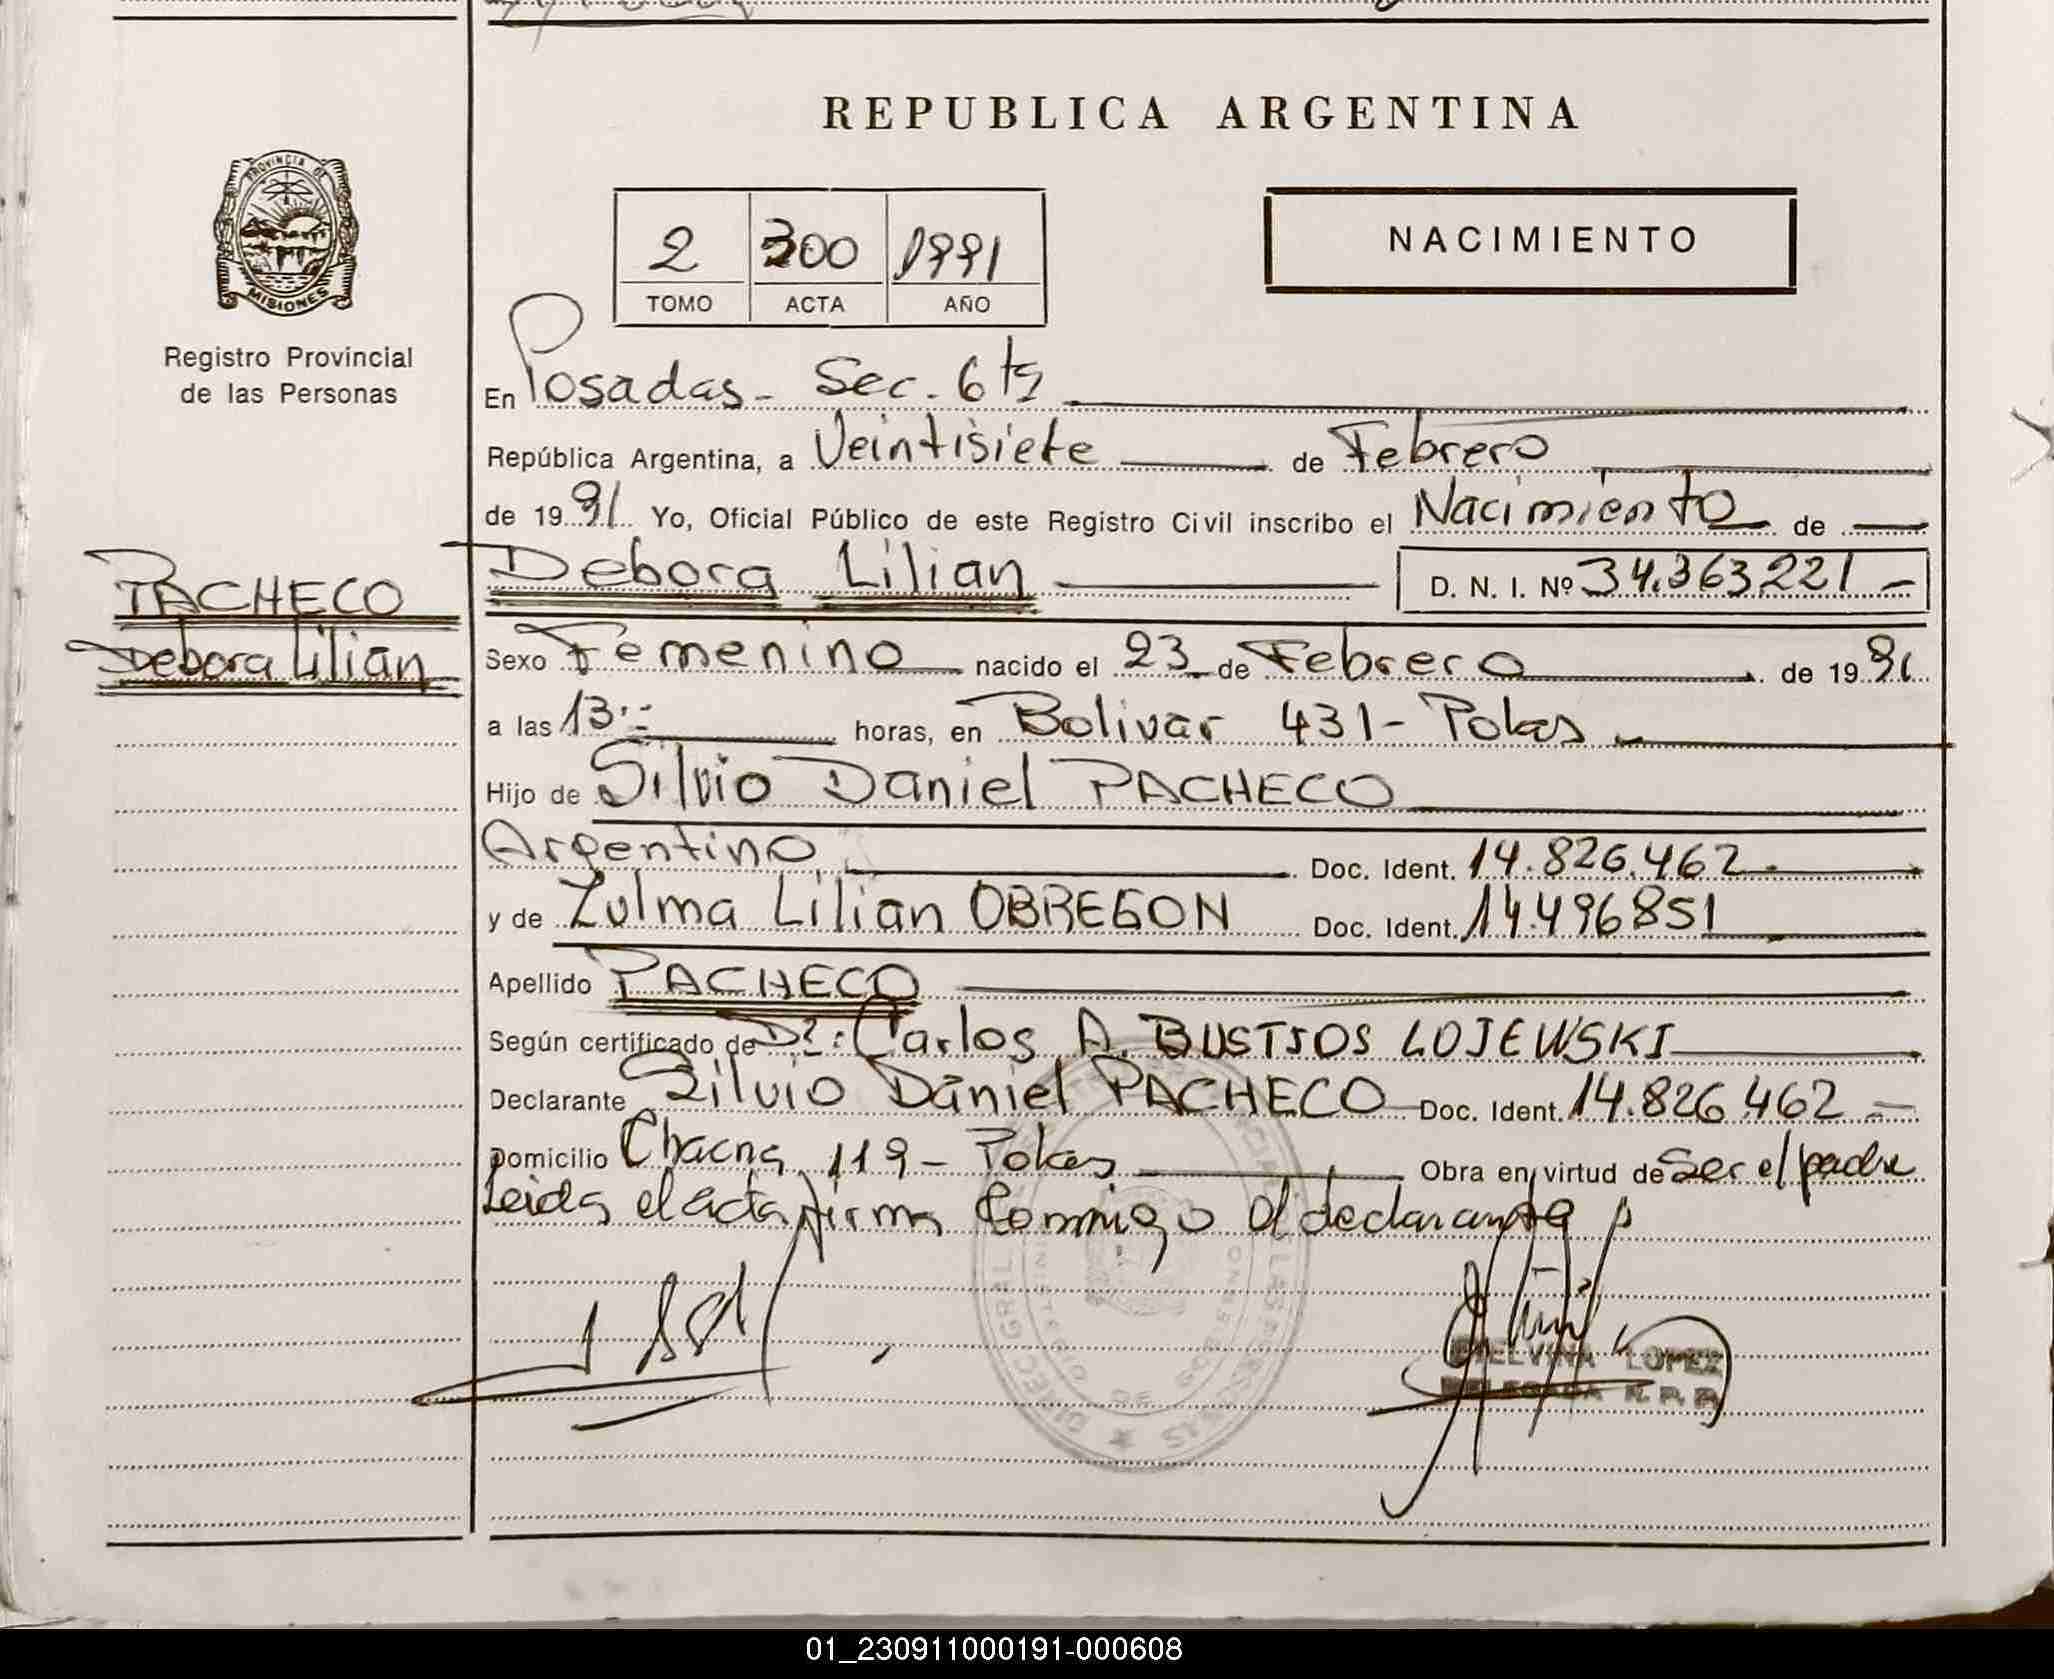 REPUBLICA ARGENTINA
PROVINCIA DE
MISIONES
Registro Provincial
de las Personas
2 300 1991
TOMO ACTA AÑO
NACIMIENTO
En Posadas - Sec. 6ta
República Argentina, a Veintisiete de Febrero
de 1991 Yo, Oficial Público de este Registro Civil inscribo el Nacimiento de
PACHECO
Debora Lilian
Debora Lilian D. N. I. Nº 34.363.221 -
Sexo Femenino nacido el 23 de Febrero de 1991
a las 13:- horas, en Bolivar 431 - Pdas
Hijo de Silvio Daniel PACHECO
Argentino Doc. Ident. 14.826.462
y de Zulma Lilian OBREGON Doc. Ident. 14.496851
Apellido PACHECO
Según certificado de Dr: Carlos A. BUSTJOS LOJEWSKI
Declarante Silvio Daniel PACHECO Doc. Ident. 14.826.462 -
Domicilio Chacra 119 - Pdas Obra en virtud de Ser el padre
Leida el acta firma conmigo el declarante
ELVINA LOPEZ
DELEGADA R. P. P.
01_230911000191-000608